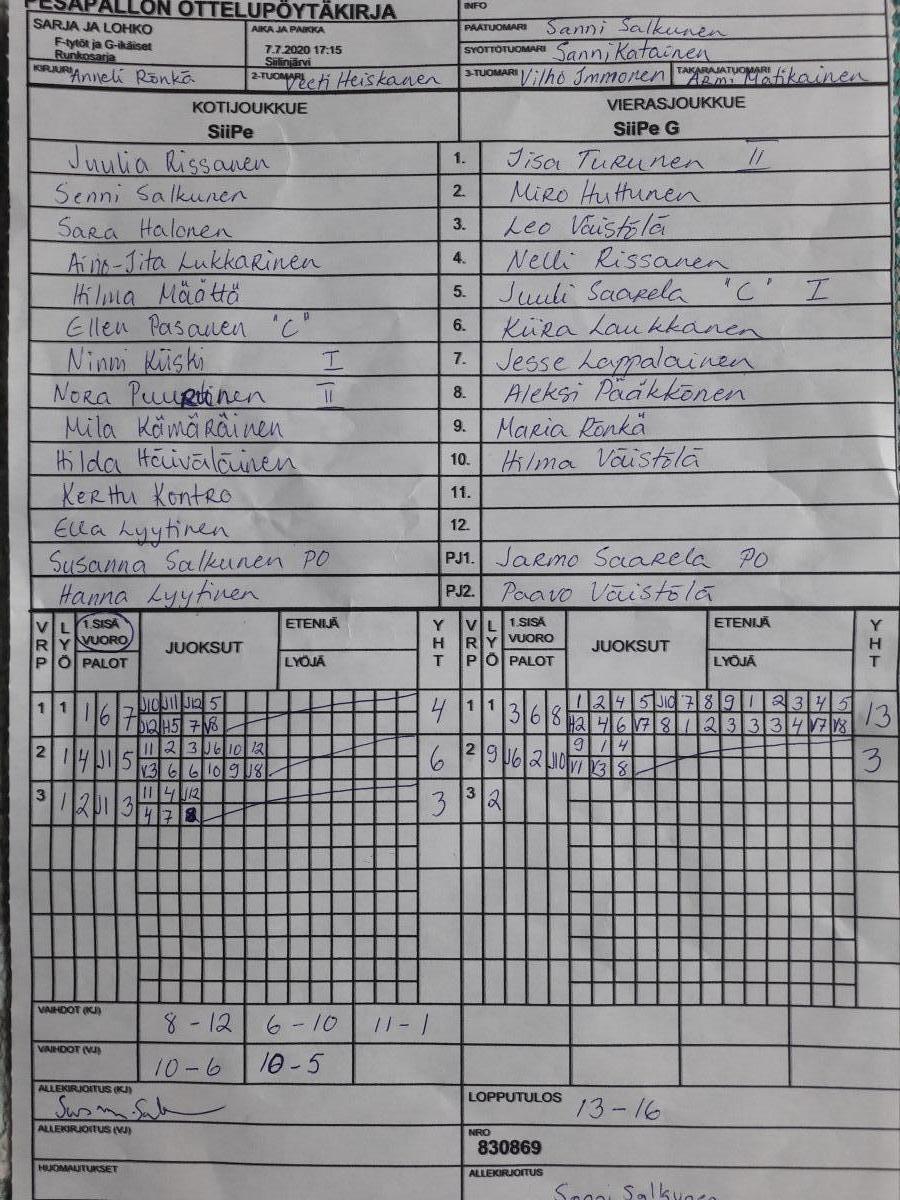 PESÄPALLON OTTELUPÖYTÄKIRJA
INFO
SARJA JA LOHKO
F-tytöt ja G-ikäiset
Runkosarja
AIKA JA PAIKKA
7.7.2020 17:15
Siilinjärvi
PÄÄTUOMARI Sanni Salkunen
SYÖTTÖTUOMARI Sanni Katainen
KIRJURI Anneli Rönkä
2-TUOMARI Veeti Heiskanen
3-TUOMARI Vilho Immonen
TAKARAJATUOMARI Armi Matikainen
KOTIJOUKKUE
SiiPe
VIERASJOUKKUE
SiiPe G
Juulia Rissanen 1. Iisa Turunen II
Senni Salkunen 2. Miro Huttunen
Sara Halonen 3. Leo Väistölä
Aino-Iita Lukkarinen 4. Nelli Rissanen
Hilma Määttä 5. Juuli Saarela "C" I
Ellen Pasanen "C" 6. Kiira Laukkanen
Ninni Kiiski I 7. Jesse Lappalainen
Nora Puurtinen II 8. Aleksi Pääkkönen
Mila Kämäräinen 9. Maria Rönkä
Hilda Häiväläinen 10. Hilma Väistölä
Kerttu Kontro 11.
Ella Lyytinen 12.
Susanna Salkunen PO PJ1. Jarmo Saarela PO
Hanna Lyytinen PJ2. Paavo Väistölä
VRP LYÖ 1.SISÄ VUORO PALOT JUOKSUT ETENIJÄ LYÖJÄ YHT VRP LYÖ 1.SISÄ VUORO PALOT JUOKSUT ETENIJÄ LYÖJÄ YHT
1 1 1 6 7 J10 J11 J12 5 4 1 1 3 6 8 1 2 4 5 J10 7 8 9 1 2 3 4 5 13
J12 H5 7 V8 H2 4 6 V7 8 1 2 3 3 3 4 V7 V8
2 1 4 J1 5 11 2 3 J6 10 12 6 2 9 J6 2 J10 9 1 4 3
V3 6 6 10 9 J8 V1 V3 8
3 1 2 J1 3 11 4 J12 3 3 2
4 7 8
VAIHDOT (KJ) 8-12 6-10 11-1
VAIHDOT (VJ) 10-6 10-5
ALLEKIRJOITUS (KJ)
LOPPUTULOS 13-16
ALLEKIRJOITUS (VJ)
NRO
830869
HUOMAUTUKSET
ALLEKIRJOITUS
Sanni Salkunen